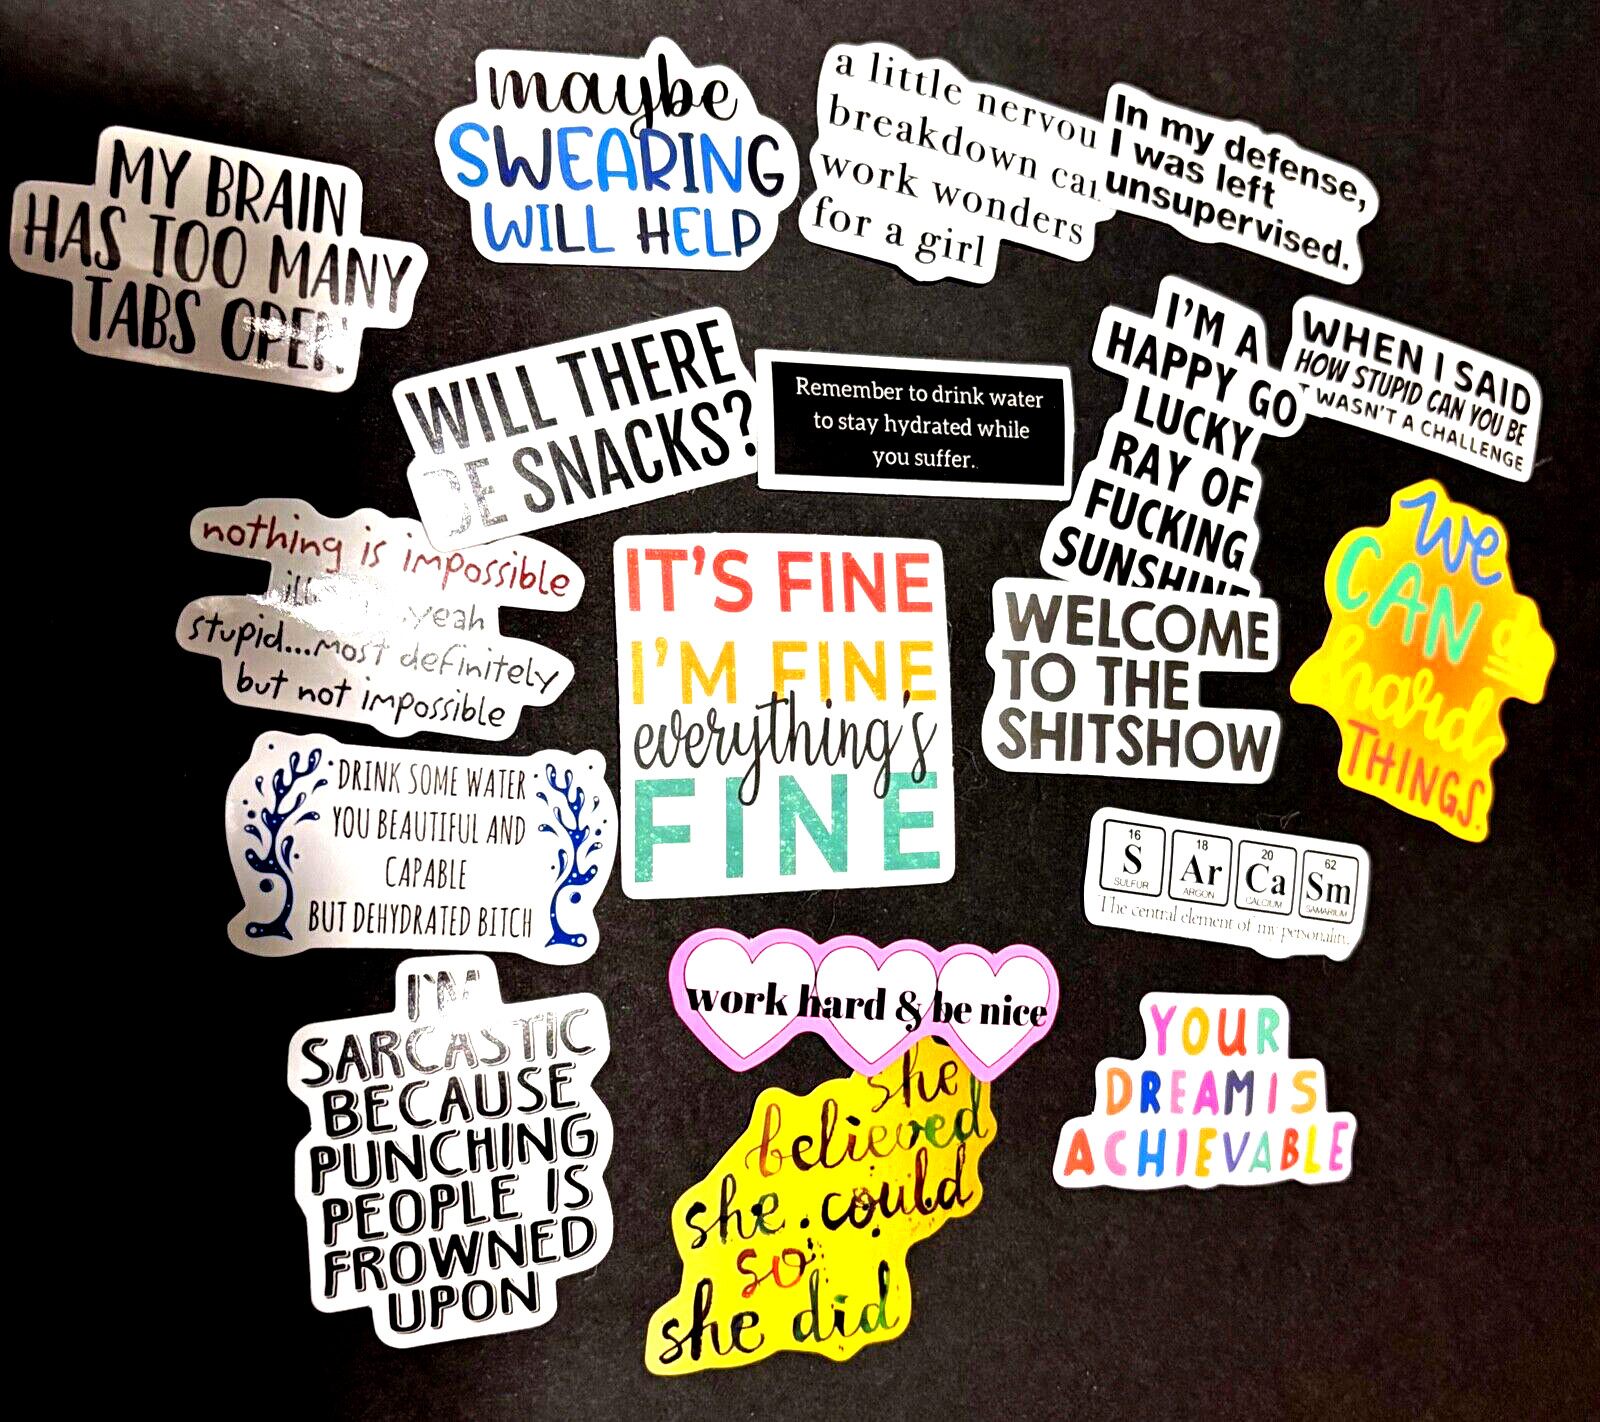 maybe
SWEARING
WILL HELP
a little nervou
breakdown can
work wonders
for a girl
In my defense,
I was left
unsupervised.
MY BRAIN
HAS TOO MANY
TABS OPEN.
WILL THERE
BE SNACKS?
Remember to drink water
to stay hydrated while
you suffer.
I'M A
HAPPY GO
LUCKY
RAY OF
FUCKING
SUNSHINE
WHEN I SAID
HOW STUPID CAN YOU BE
WASN'T A CHALLENGE
nothing is impossible
yeah
stupid...most definitely
but not impossible
IT'S FINE
I'M FINE
everything's
FINE
WELCOME
TO THE
SHITSHOW
We
CAN do
hard
THINGS.
DRINK SOME WATER
YOU BEAUTIFUL AND
CAPABLE
BUT DEHYDRATED BITCH
16 18 20 62
S Ar Ca Sm
SULFUR ARGON CALCIUM SAMARIUM
The central element of my personality.
I'M
SARCASTIC
BECAUSE
PUNCHING
PEOPLE IS
FROWNED
UPON
work hard & be nice
she
believed
she could
so
she did
YOUR
DREAM IS
ACHIEVABLE